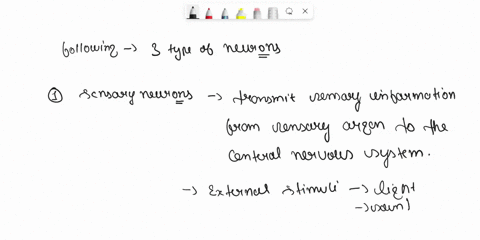 following → 3 type of neurons
① sensary neurons → transmit sensary information
from sensary organ to the
central nervous system.
→ External stimuli → light
→ sound